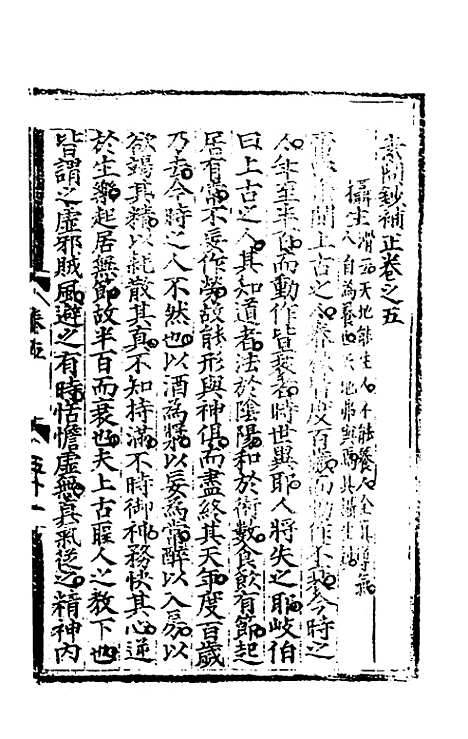 素問鈔補正卷之五
攝生 滑云天地能生人不能養人全 氣
人自為養也天地 與焉 攝生
聞上古之人春秋皆度百歲而動作不衰今時之
人年至半百而動作皆衰者時世異耶人將失之耶岐伯
曰上古之人其知道者法於陰陽和於術數食飲有節起
居有常不妄作勞故能形與神俱而盡終其天年度百歲
乃去今時之人不然也以酒為漿以妄為常醉以入房以
欲竭其精以耗散其真不知持滿不時御神務快其心逆
於生樂起居無節故半百而衰也夫上古聖人之教下也
皆謂之虛邪賊風避之有時恬憺虛無真氣從之精神內
卷五